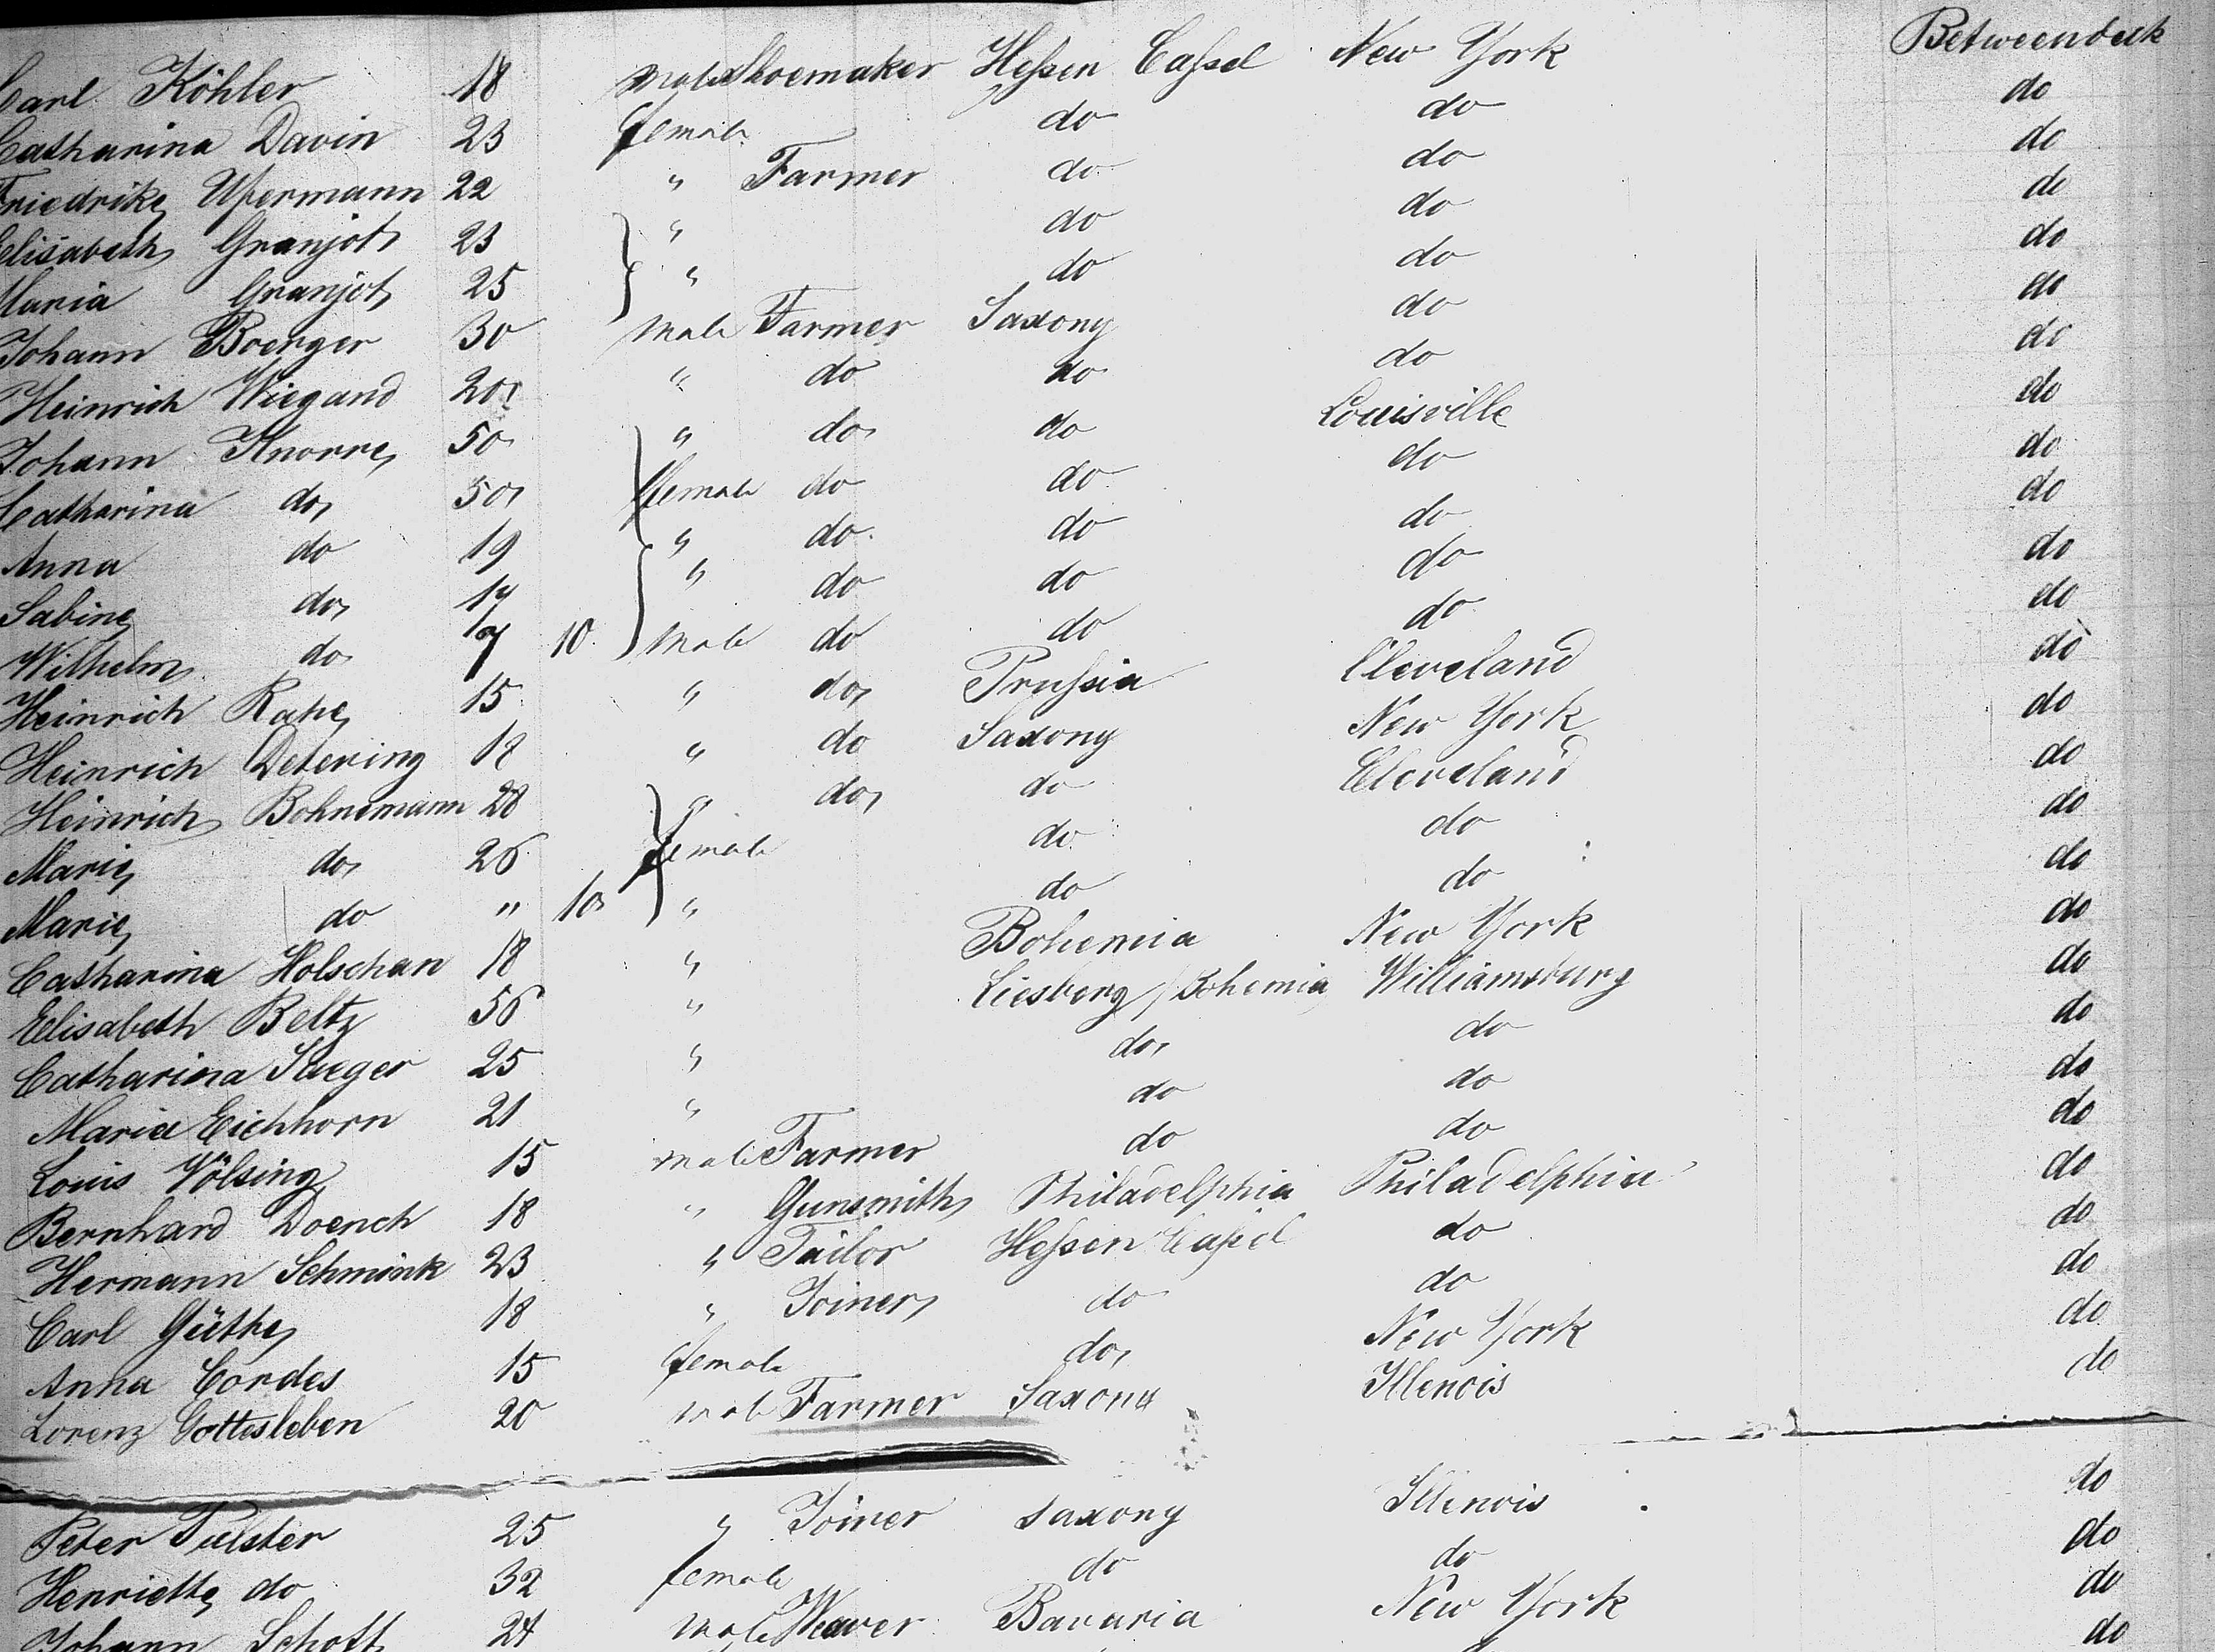 Carl Köhler 18 male Shoemaker Hessen Cassel New York Betweendeck
Catharina Davin 23 female do do do
Friedrike Upermann 22 " Farmer do do do
Elisabeth Granjot 23 " do do do
Maria Granjot 25 " do do do
Johann Boerger 30 male Farmer Saxony do do
Heinrich Wiegand 20 " do do do do
Johann Knorre 50 " do do Louisville do
Catharina do 50 female do do do do
Anna do 19 " do do do do
Sabine do 14 " do do do do
Wilhelm do 7 10 male do do do do
Heinrich Rahe 15 " do Prussia Cleveland do
Heinrich Detering 18 " do Saxony New York do
Heinrich Bohnemann 28 " do do Cleveland do
Marie do 26 female do do do
Marie do " 10 " do do do
Catharina Holschan 18 " Bohemia New York do
Elisabeth Beltz 56 " Liesberg / Bohemia Williamsburg do
Catharina Saeger 25 " do do do
Maria Eichhorn 21 " do do do
Louis Völsing 15 male Farmer do do do
Bernhard Doench 18 " Gunsmith Philadelphia Philadelphia do
Hermann Schmink 23 " Tailor Hessen Cassel do do
Carl Güthe 18 " Joiner do do do
Anna Cordes 15 female do New York do
Lorenz Gottesleben 20 male Farmer Saxony Illenois do
Peter Fulster 25 " Joiner Saxony Illenois do
Henriette do 32 female do do do
Johann Schott 24 male Weaver Bavaria New York do
do